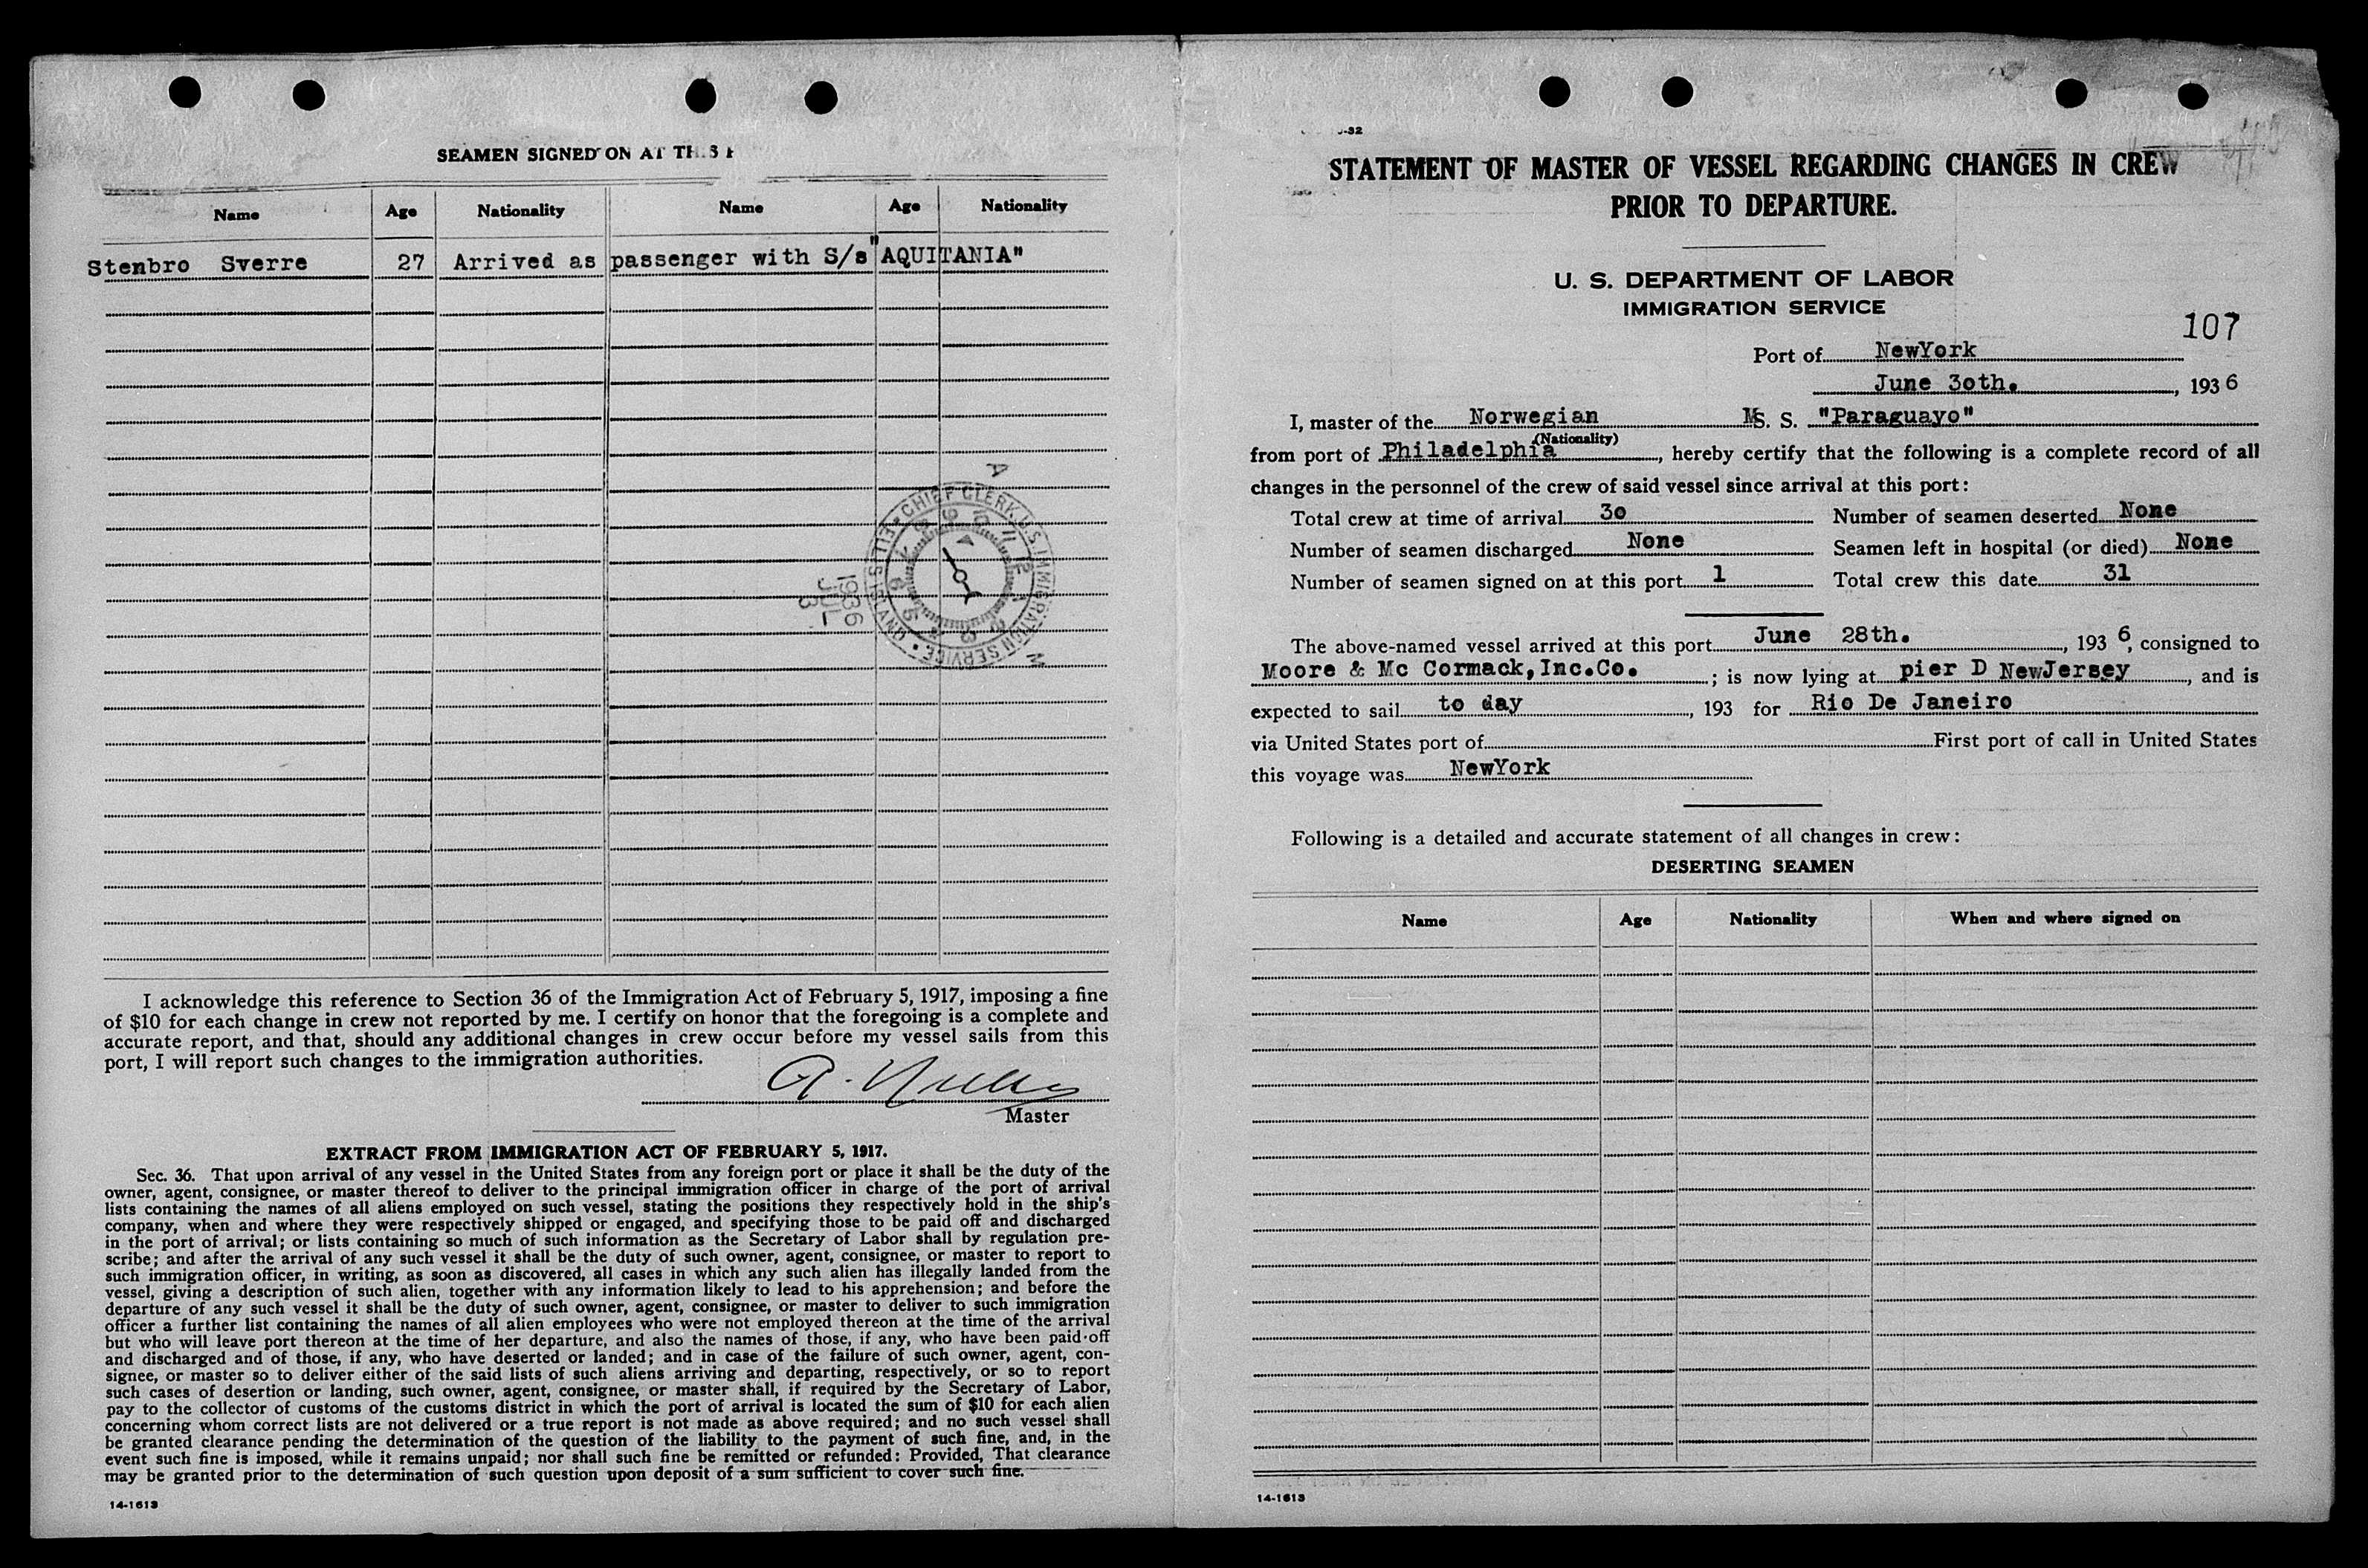 SEAMEN SIGNED ON AT
Name Age Nationality Name Age Nationality
Stenbro Sverre 27 Arrived as passenger with S/s "AQUITANIA"
CHIEF CLERK U.S. IMMIGRATION SERVICE
ELLIS ISLAND
1936
JUL
3
A
M
I acknowledge this reference to Section 36 of the Immigration Act of February 5, 1917, imposing a fine
of $10 for each change in crew not reported by me. I certify on honor that the foregoing is a complete and
accurate report, and that, should any additional changes in crew occur before my vessel sails from this
port, I will report such changes to the immigration authorities.
Master
EXTRACT FROM IMMIGRATION ACT OF FEBRUARY 5, 1917.
Sec. 36. That upon arrival of any vessel in the United States from any foreign port or place it shall be the duty of the
owner, agent, consignee, or master thereof to deliver to the principal immigration officer in charge of the port of arrival
lists containing the names of all aliens employed on such vessel, stating the positions they respectively hold in the ship's
company, when and where they were respectively shipped or engaged, and specifying those to be paid off and discharged
in the port of arrival; or lists containing so much of such information as the Secretary of Labor shall by regulation pre-
scribe; and after the arrival of any such vessel it shall be the duty of such owner, agent, consignee, or master to report to
such immigration officer, in writing, as soon as discovered, all cases in which any such alien has illegally landed from the
vessel, giving a description of such alien, together with any information likely to lead to his apprehension; and before the
departure of any such vessel it shall be the duty of such owner, agent, consignee, or master to deliver to such immigration
officer a further list containing the names of all alien employees who were not employed thereon at the time of the arrival
but who will leave port thereon at the time of her departure, and also the names of those, if any, who have been paid off
and discharged and of those, if any, who have deserted or landed; and in case of the failure of such owner, agent, con-
signee, or master so to deliver either of the said lists of such aliens arriving and departing, respectively, or so to report
such cases of desertion or landing, such owner, agent, consignee, or master shall, if required by the Secretary of Labor,
pay to the collector of customs of the customs district in which the port of arrival is located the sum of $10 for each alien
concerning whom correct lists are not delivered or a true report is not made as above required; and no such vessel shall
be granted clearance pending the determination of the question of the liability to the payment of such fine, and, in the
event such fine is imposed, while it remains unpaid; nor shall such fine be remitted or refunded: Provided, That clearance
may be granted prior to the determination of such question upon deposit of a sum sufficient to cover such fine.
14-1613
-32
STATEMENT OF MASTER OF VESSEL REGARDING CHANGES IN CREW
PRIOR TO DEPARTURE.
U. S. DEPARTMENT OF LABOR
IMMIGRATION SERVICE
107
Port of NewYork
June 3oth. , 1936
I, master of the Norwegian MS. S. "Paraguayo"
(Nationality)
from port of Philadelphia , hereby certify that the following is a complete record of all
changes in the personnel of the crew of said vessel since arrival at this port:
Total crew at time of arrival 3o Number of seamen deserted None
Number of seamen discharged None Seamen left in hospital (or died) None
Number of seamen signed on at this port 1 Total crew this date 31
The above-named vessel arrived at this port June 28th. , 1936, consigned to
Moore & Mc Cormack,Inc.Co. ; is now lying at pier D NewJersey , and is
expected to sail to day , 193 for Rio De Janeiro
via United States port of First port of call in United States
this voyage was NewYork
Following is a detailed and accurate statement of all changes in crew:
DESERTING SEAMEN
Name Age Nationality When and where signed on
14-1613